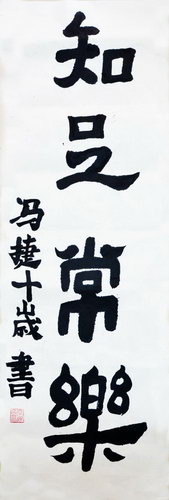 知足常樂
冯捷十歲書